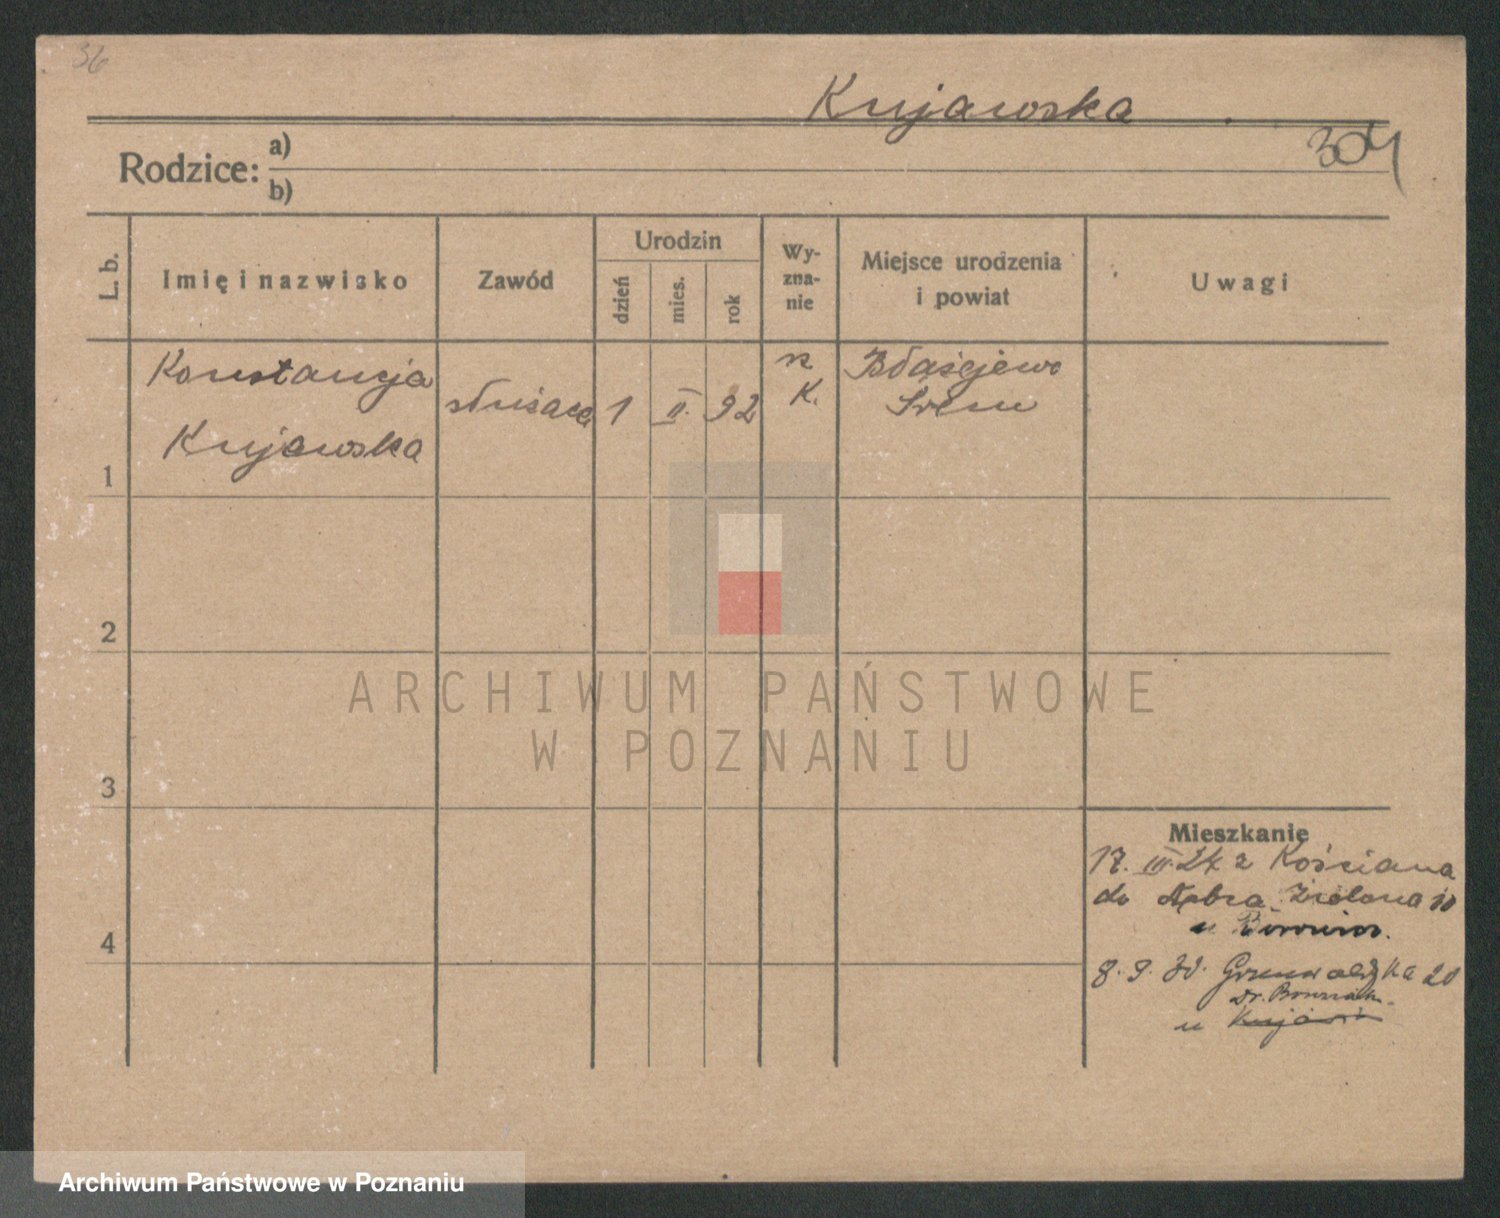 36
Kujawska
304
Rodzice: a)
b)
L. b.
Imię i nazwisko
Zawód
Urodzin
dzień
mies.
rok
Wy-
zna-
nie
Miejsce urodzenia
i powiat
Uwagi
1
Konstancja
Kujawska
służąca
1
II.
92
rz
K.
Błażejewo
Śrem
2
3
4
Mieszkanie
17. III. 24 z Kościana
do Zielona 10
u
8. 9. Grunwaldzka 20
Dr.
u
ARCHIWUM PAŃSTWOWE
W POZNANIU
Archiwum Państwowe w Poznaniu